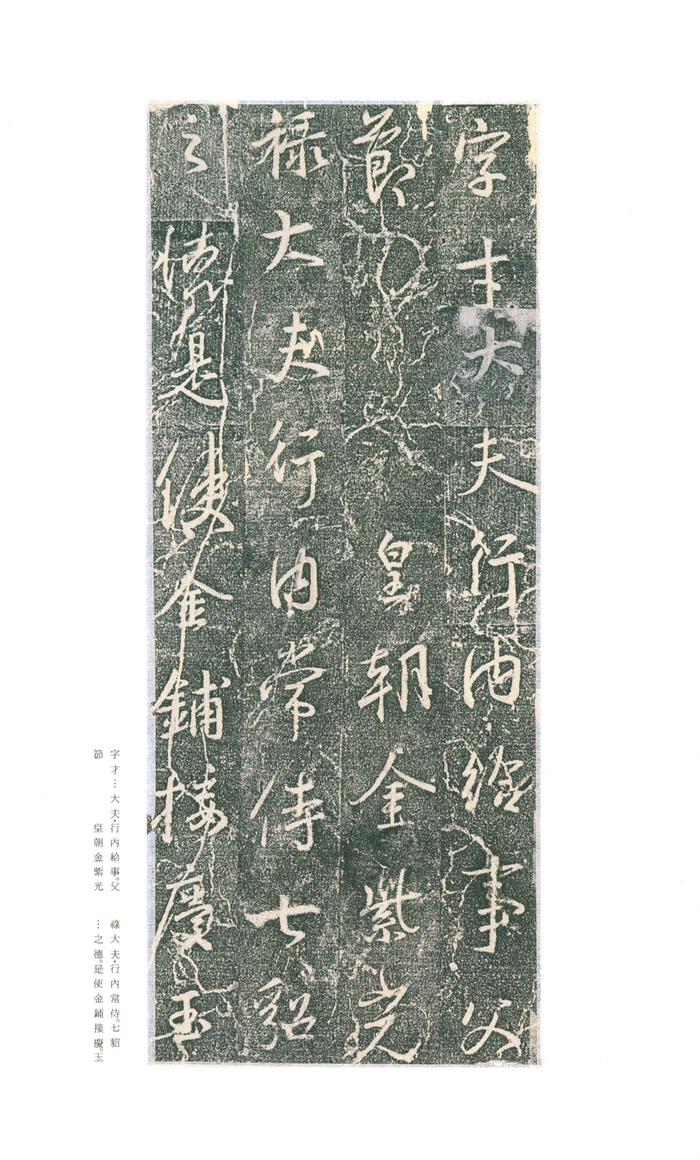 字才大夫行內給事父
節 皇朝金紫光
祿大夫行內常侍七貂
之德是使金鋪接慶玉
字才…大夫・行內給事。父
節 皇朝金紫光
祿大夫・行內常侍。七貂
…之德。是使金鋪接慶。玉